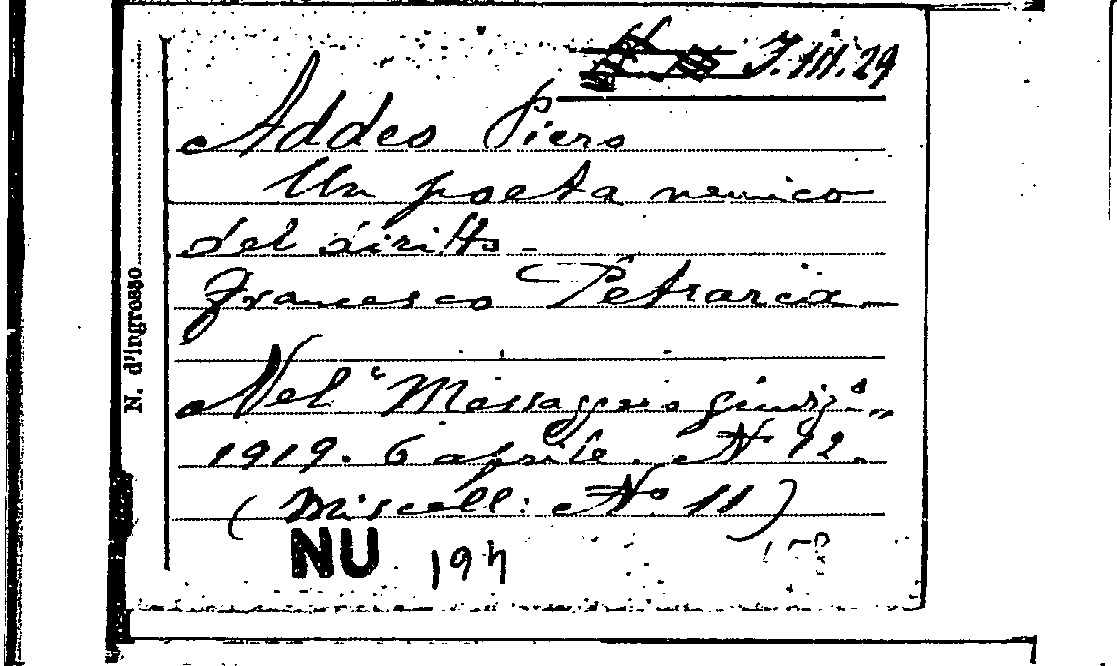 J.III.29
Addeo Piero
Un poeta nemico
del diritto -
Francesco Petrarca -
Nel "Messaggero giudiz.°"
1919. 6 aprile. N° 12.
(Miscell: N° 11)
NU 194
N. d'ingresso